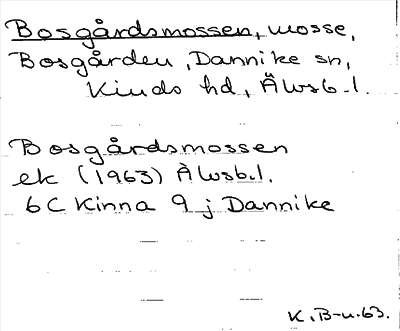 Bosgårdsmossen, mosse,
Bosgården, Dannike sn,
Kinds hd, Älvsb. l.
Bosgårdsmossen
ek (1963) Älvsb.l.
6C Kinna 9 j Dannike
K.B-n.63.